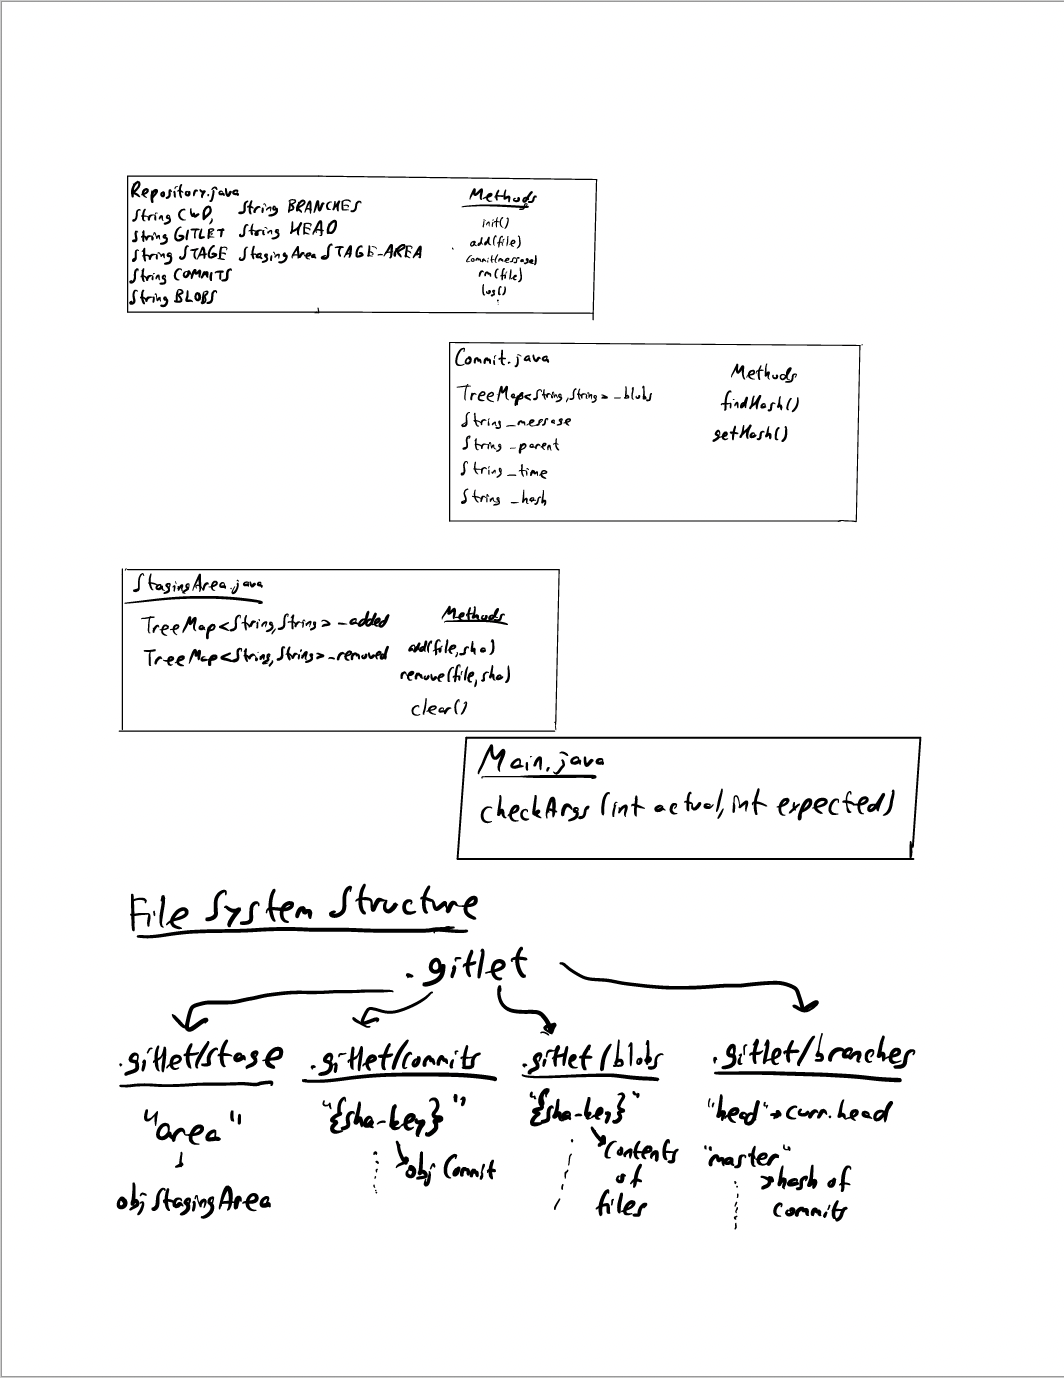 Repository.java
String CWD, String BRANCHES
String GITLET String HEAD
String STAGE StagingArea STAGE_AREA
String COMMITS
String BLOBS
Methods
init()
add(file)
commit(message)
rm(file)
log()
Commit.java
TreeMap<String,String> _blobs
String _message
String _parent
String _time
String _hash
Methods
findHash()
getHash()
StagingArea.java
TreeMap<String,String> _added
TreeMap<String,String> _removed
Methods
add(file,sha)
remove(file,sha)
clear()
Main.java
checkArgs (int actual, int expected)
File System Structure
.gitlet
.gitlet/stage .gitlet/commits .gitlet/blobs .gitlet/branches
"area"
obj StagingArea
"{sha-key}"
obj Commit
"{sha-key}"
contents
of
files
"head" → curr.head
"master"
hash of
commits